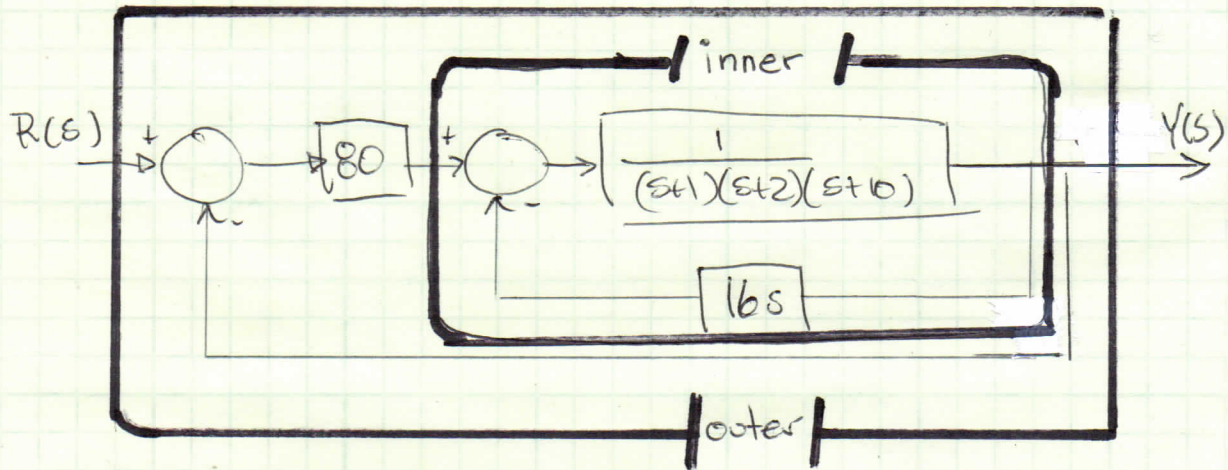 inner
R(s)
+
80
+
1
(s+1)(s+2)(s+10)
Y(s)
-
-
16s
outer